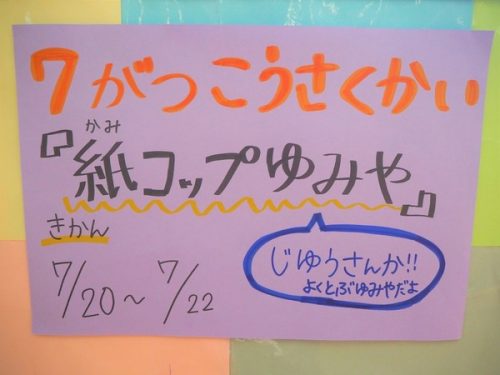 7がつこうさくかい
かみ
『紙コップゆみや』
きかん
7/20～7/22
じゆうさんか!!
よくとぶゆみやだよ